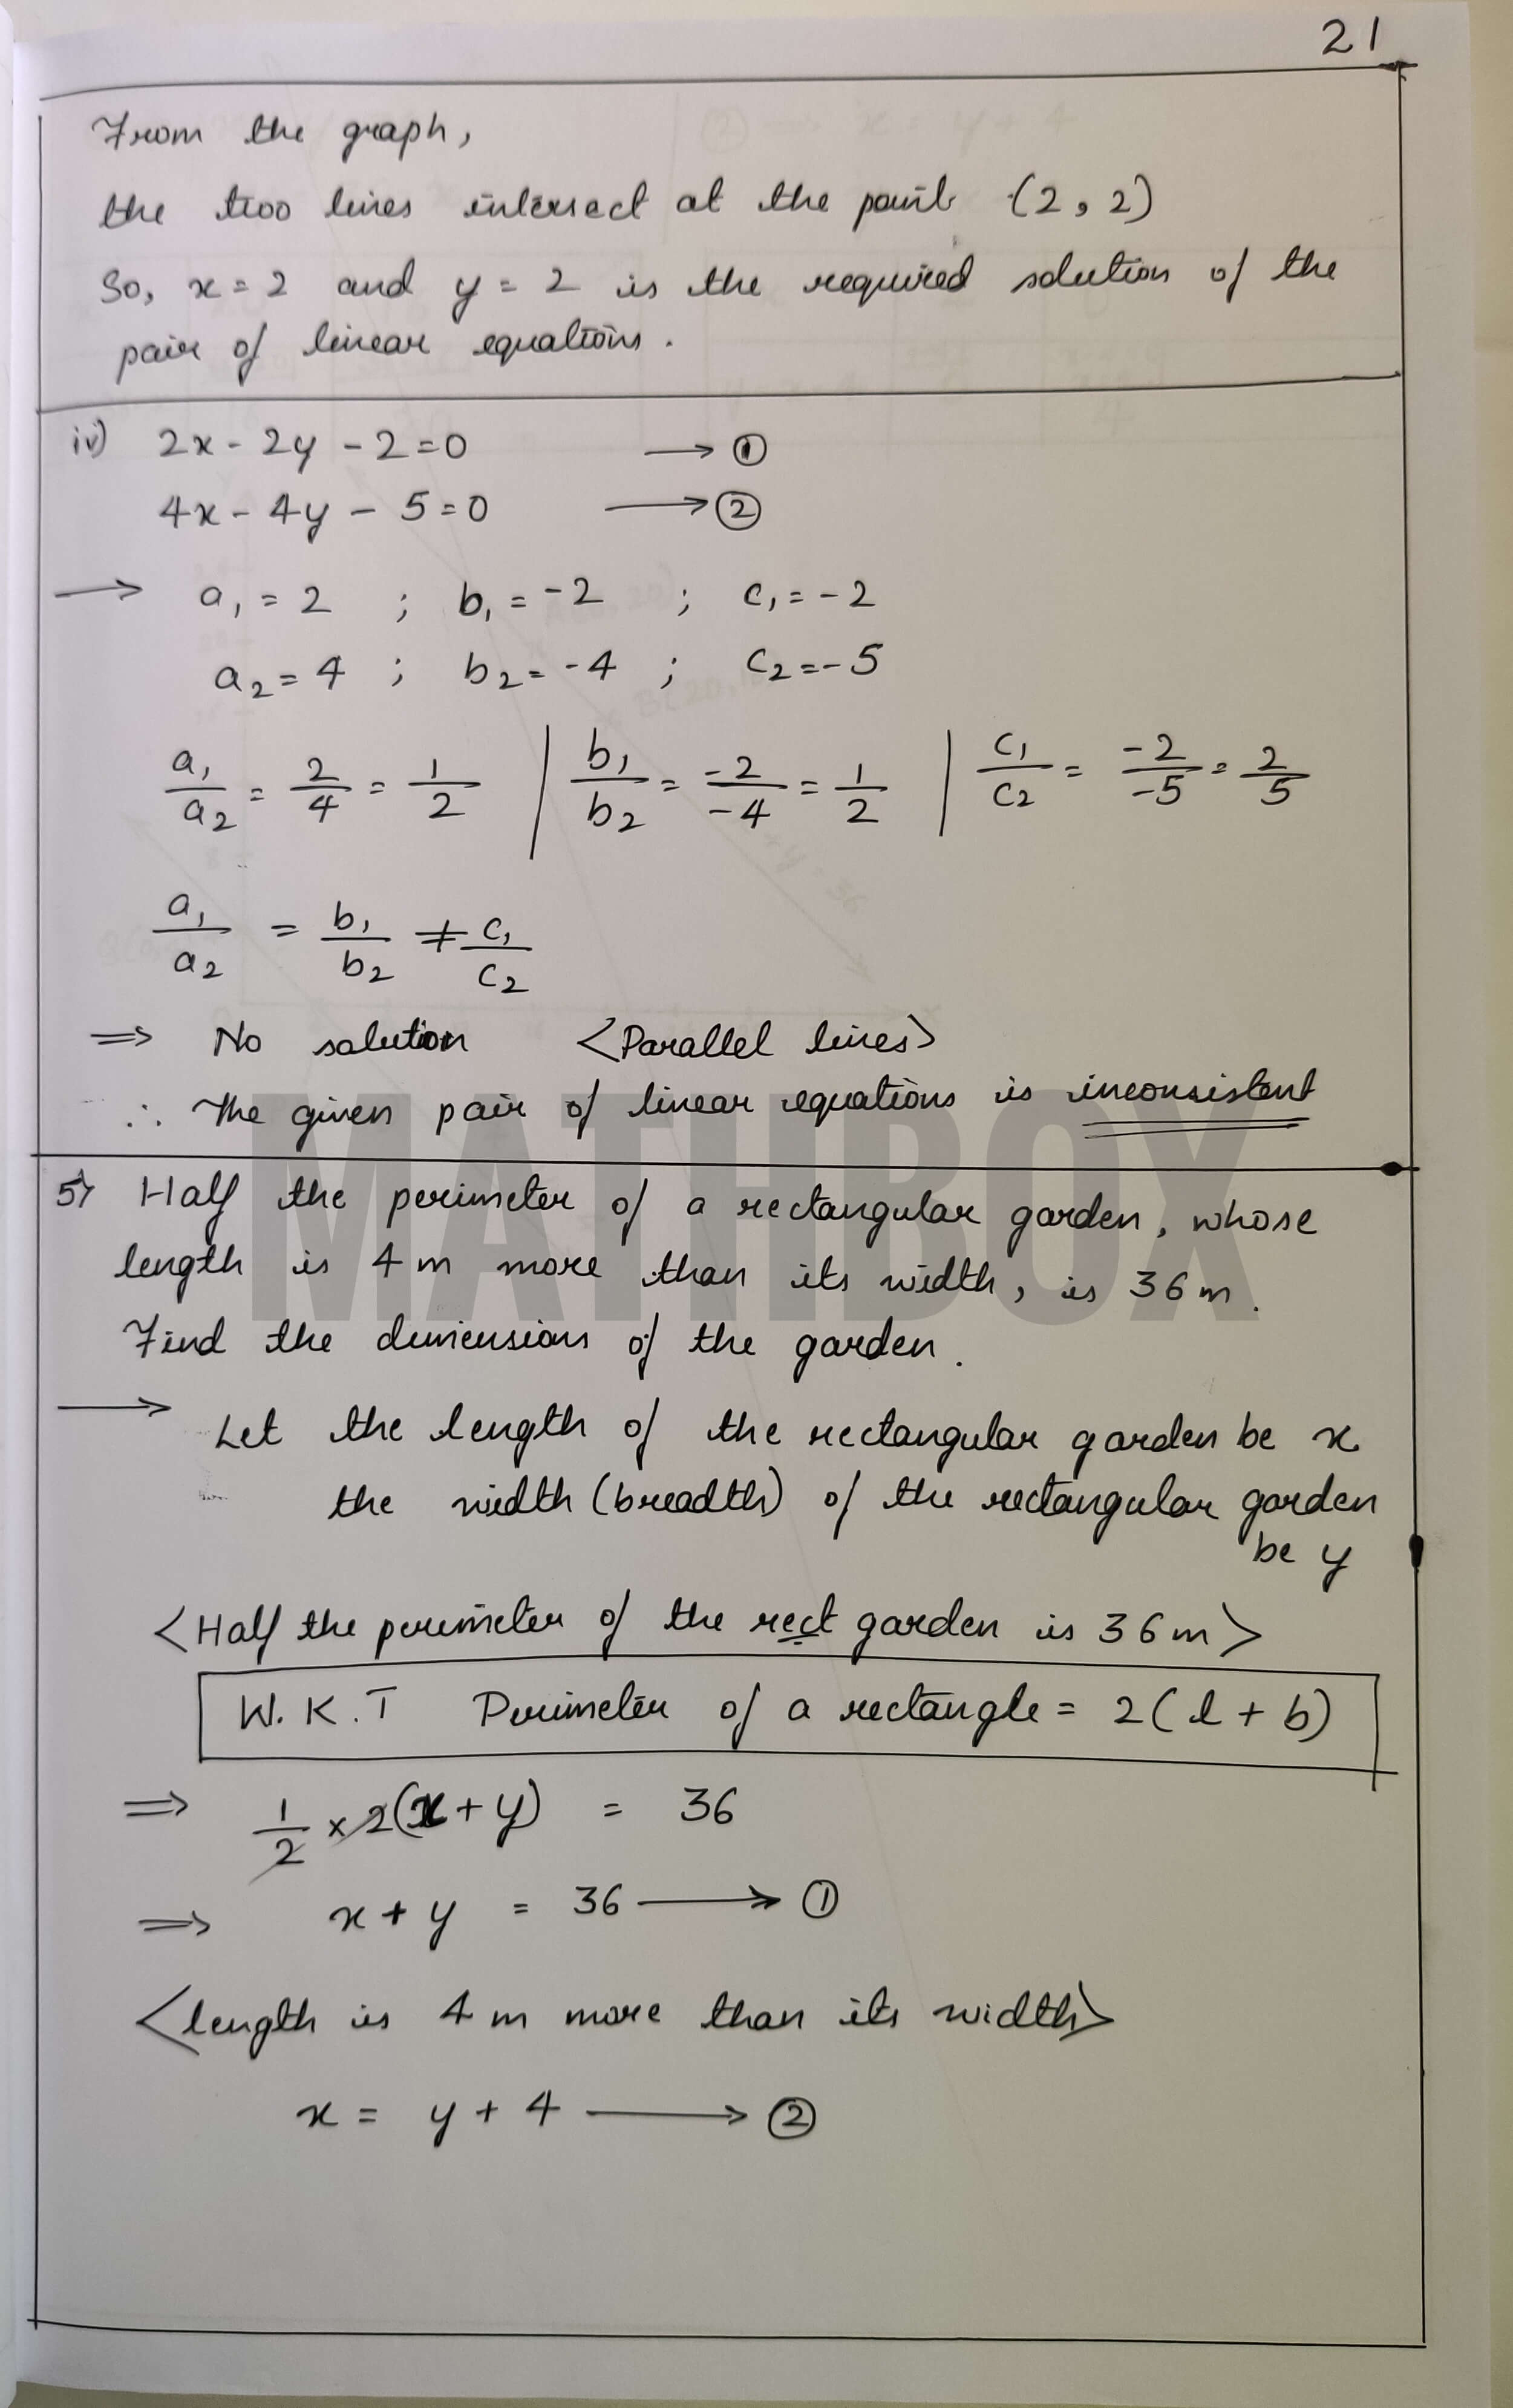 21
From the graph,
the two lines intersect at the point (2, 2)
So, x = 2 and y = 2 is the required solution of the
pair of linear equations.
iv) 2x - 2y - 2 = 0 → ①
4x - 4y - 5 = 0 → ②
→ a₁ = 2 ; b₁ = -2 ; c₁ = -2
a₂ = 4 ; b₂ = -4 ; c₂ = -5
a₁/a₂ = 2/4 = 1/2 | b₁/b₂ = -2/-4 = 1/2 | c₁/c₂ = -2/-5 = 2/5
a₁/a₂ = b₁/b₂ ≠ c₁/c₂
⇒ No solution <Parallel lines>
∴ The given pair of linear equations is inconsistent
MATHBOX
5) Half the perimeter of a rectangular garden, whose
length is 4 m more than its width, is 36 m.
Find the dimensions of the garden.
→ Let the length of the rectangular garden be x
the width (breadth) of the rectangular garden
be y
<Half the perimeter of the rect garden is 36 m>
W.K.T Perimeter of a rectangle = 2(l + b)
⇒ 1/2 × 2(x + y) = 36
⇒ x + y = 36 → ①
<length is 4 m more than its width>
x = y + 4 → ②